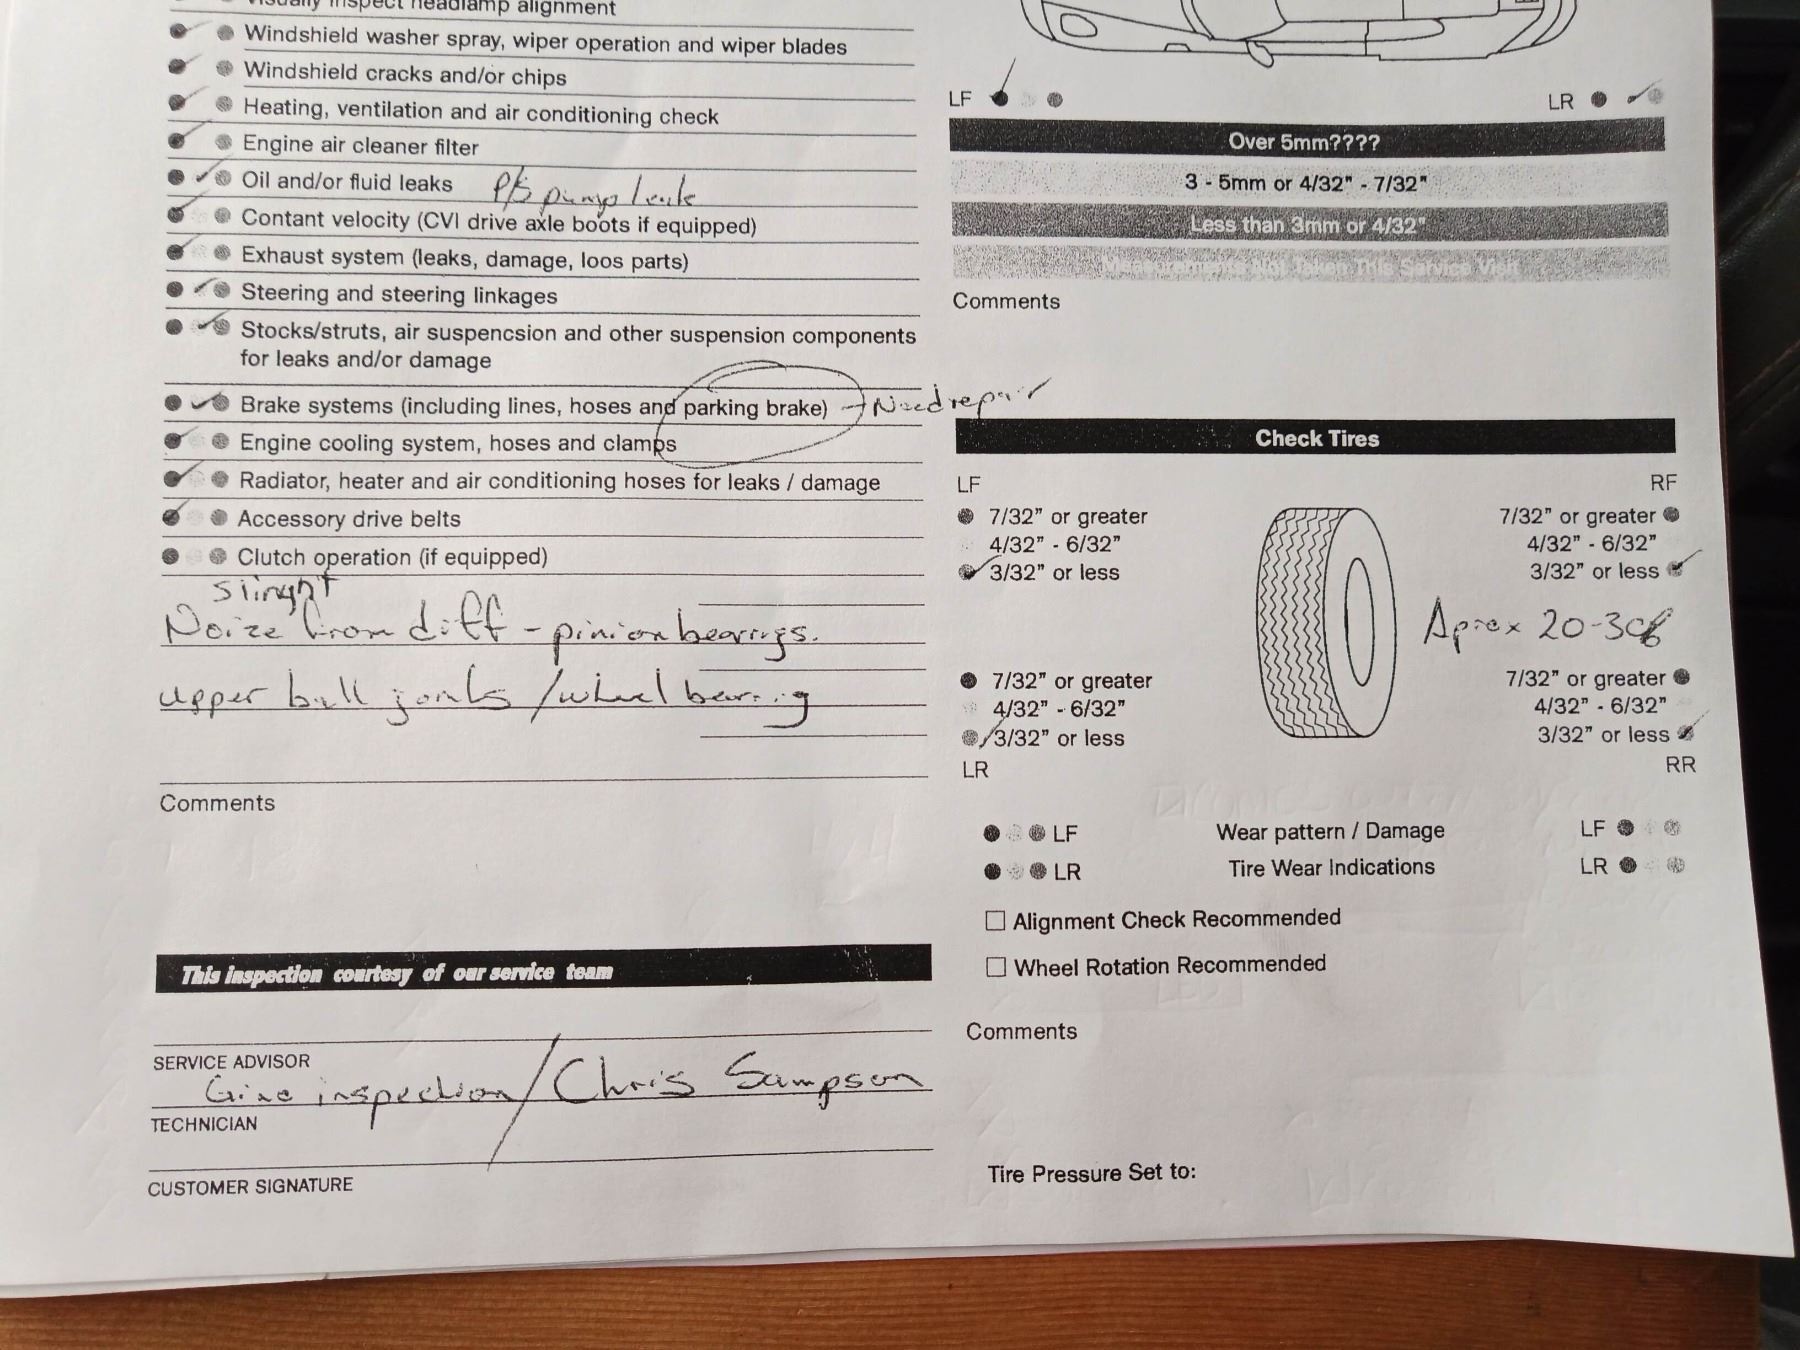 Visually inspect headlamp alignment
Windshield washer spray, wiper operation and wiper blades
Windshield cracks and/or chips
Heating, ventilation and air conditioning check
Engine air cleaner filter
Oil and/or fluid leaks P/s pump leak
Contant velocity (CVI drive axle boots if equipped)
Exhaust system (leaks, damage, loos parts)
Steering and steering linkages
Stocks/struts, air suspencsion and other suspension components
for leaks and/or damage
Brake systems (including lines, hoses and parking brake) - Need repair
Engine cooling system, hoses and clamps
Radiator, heater and air conditioning hoses for leaks / damage
Accessory drive belts
Clutch operation (if equipped)
slinght
Noize from diff - pinion bearings.
upper ball joints / wheel bearing
Comments
This inspection courtesy of our service team
SERVICE ADVISOR
inspection / Chris Sampson
TECHNICIAN
CUSTOMER SIGNATURE
LF LR
Over 5mm????
3 - 5mm or 4/32" - 7/32"
Less than 3mm or 4/32"
Measurements Not Taken This Service Visit
Comments
Check Tires
LF RF
7/32" or greater 7/32" or greater
4/32" - 6/32" 4/32" - 6/32"
3/32" or less 3/32" or less
Aprox 20-30%
7/32" or greater 7/32" or greater
4/32" - 6/32" 4/32" - 6/32"
3/32" or less 3/32" or less
LR RR
LF Wear pattern / Damage LF
LR Tire Wear Indications LR
Alignment Check Recommended
Wheel Rotation Recommended
Comments
Tire Pressure Set to: